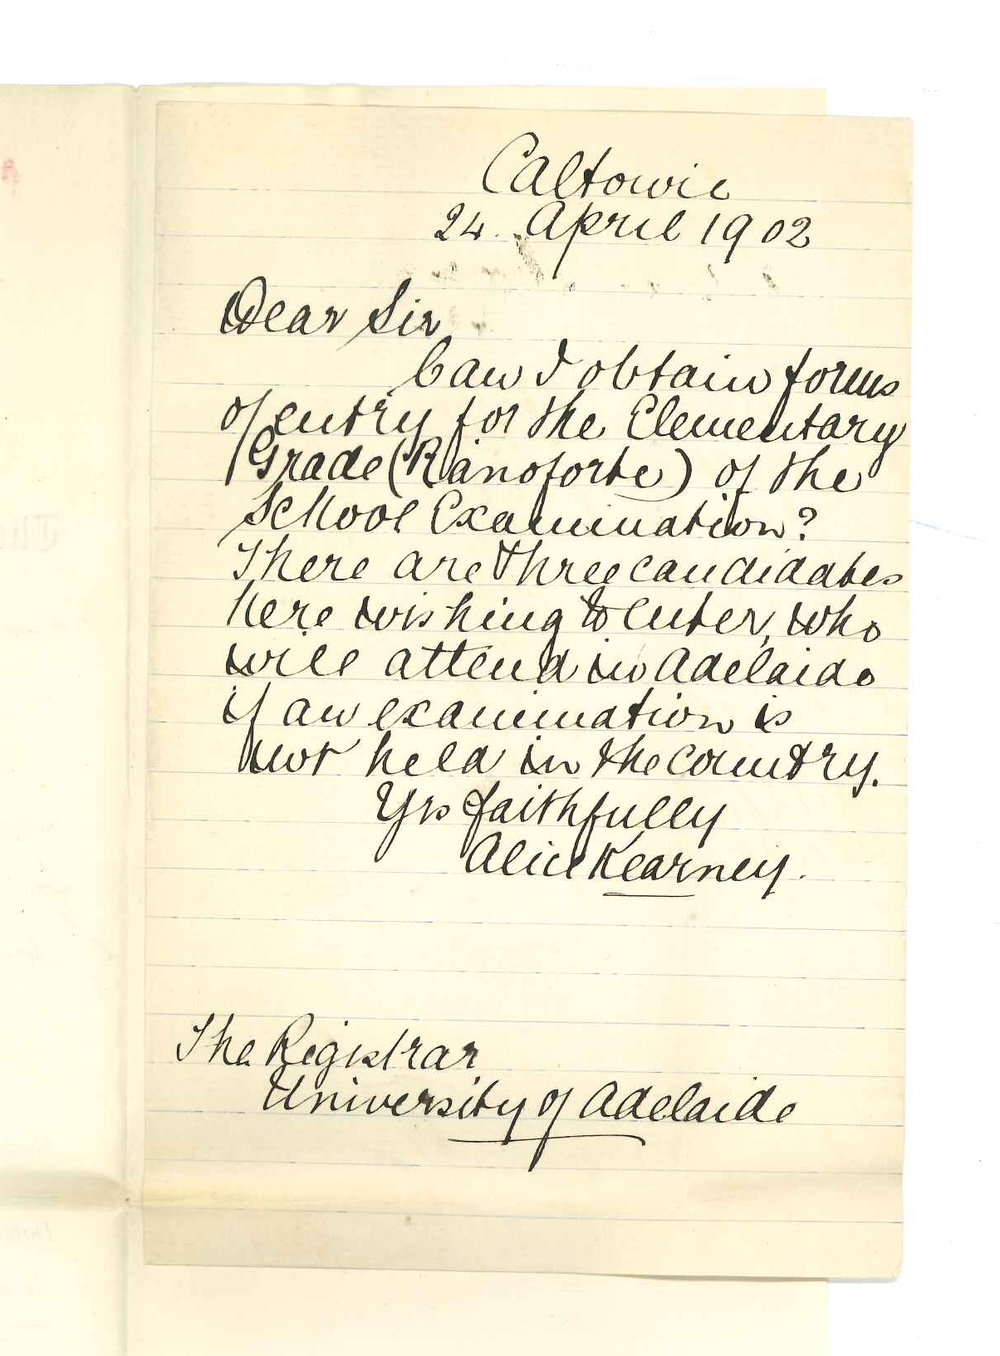 Caltowie
24 April 1902
Dear Sir
Can I obtain forms
of entry for the Elementary
Grade (Pianoforte) of the
School Examination?
There are three candidates
here wishing to enter, who
will attend in Adelaide
if an examination is
not held in the country.
Yrs faithfully
Alice Kearney.
The Registrar
University of Adelaide